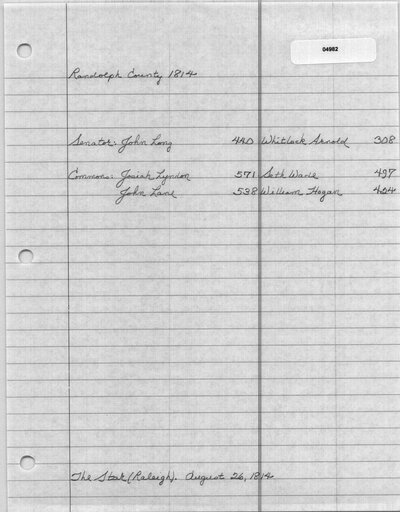 04982
Randolph County 1814
Senator: John Long 440 Whitlock Arnold 308
Commons: Josiah Lyndon 571 Seth Wade 497
John Lane 538 William Hogan 404
The Star (Raleigh). August 26, 1814